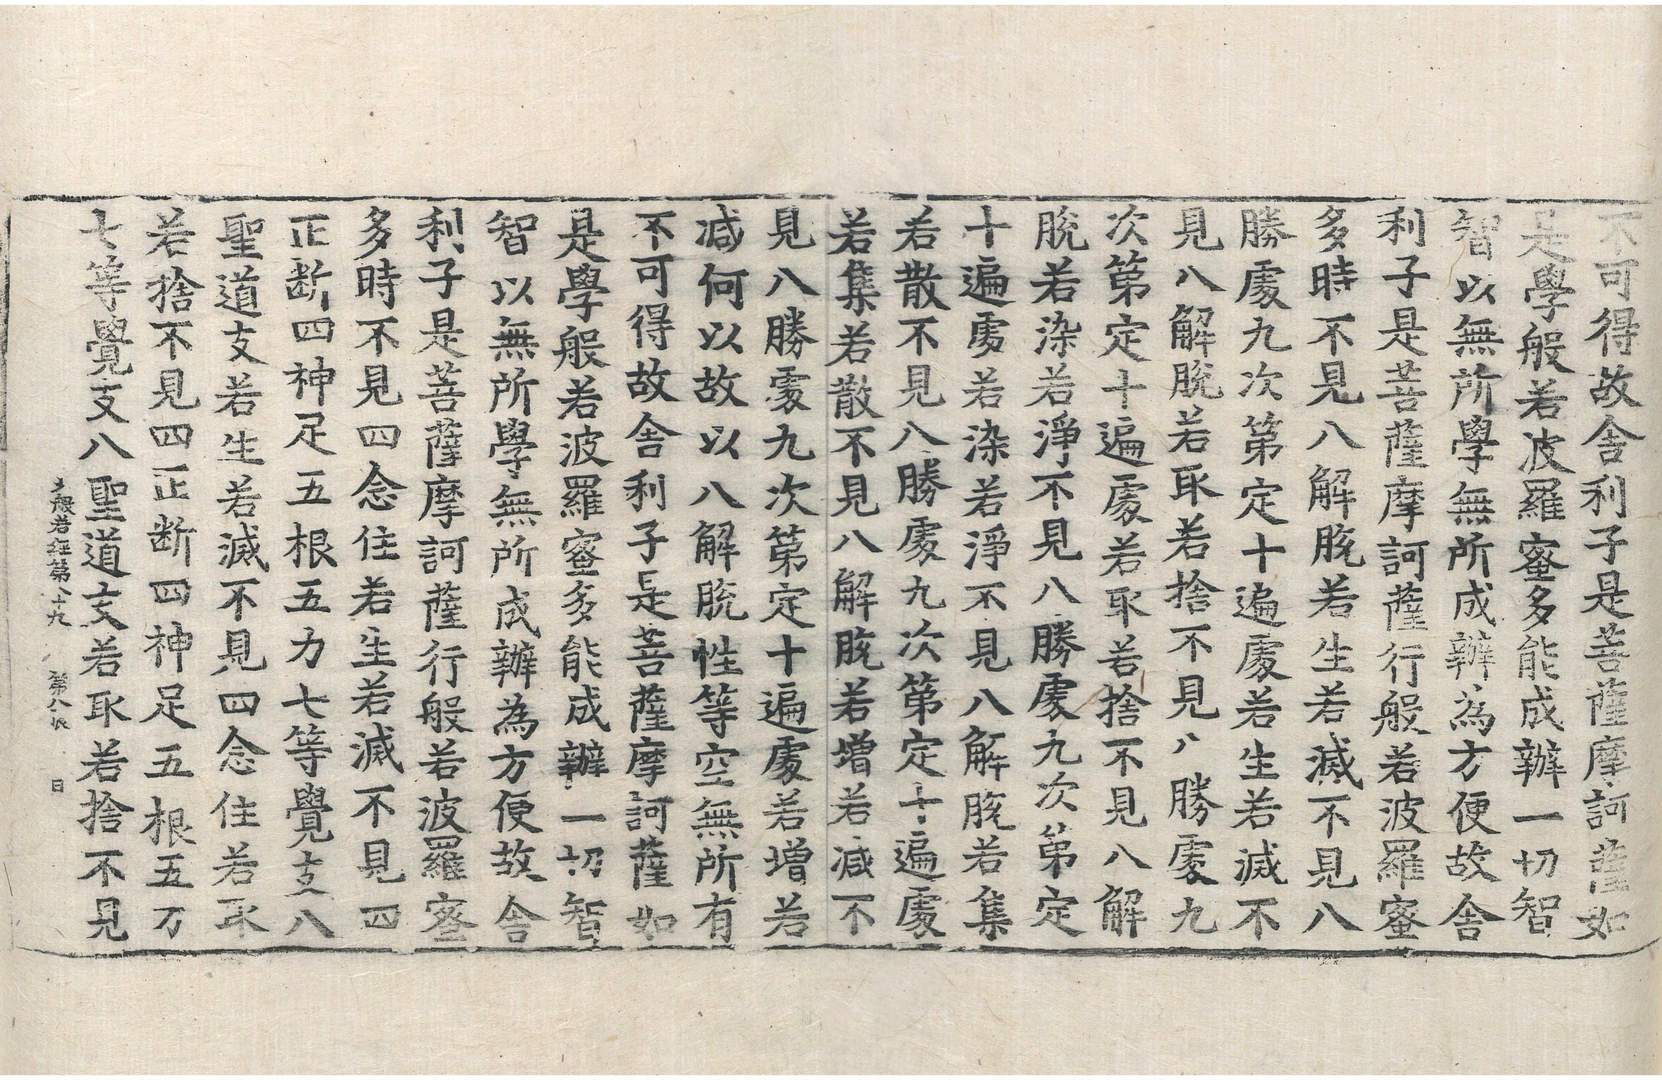 不可得故舍利子是菩薩摩訶薩如
是學般若波羅蜜多能成辦一切智
智以無所學無所成辦為方便故舍
利子是菩薩摩訶薩行般若波羅蜜
多時不見八解脫若生若滅不見八
勝處九次第定十遍處若生若滅不
見八解脫若取若捨不見八勝處九
次第定十遍處若取若捨不見八解
脫若染若淨不見八勝處九次第定
十遍處若染若淨不見八解脫若集
若散不見八勝處九次第定十遍處
若集若散不見八解脫若增若減不
見八勝處九次第定十遍處若增若
減何以故以八解脫性等空無所有
不可得故舍利子是菩薩摩訶薩如
是學般若波羅蜜多能成辦一切智
智以無所學無所成辦為方便故舍
利子是菩薩摩訶薩行般若波羅蜜
多時不見四念住若生若滅不見四
正断四神足五根五力七等覺支八
聖道支若生若滅不見四念住若取
若捨不見四正断四神足五根五力
七等覺支八聖道支若取若捨不見
大般若經第八十九 第八張 日